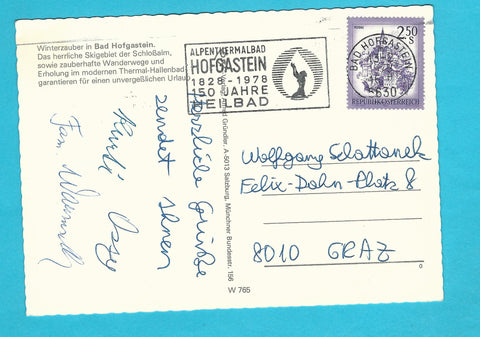 Winterzauber in Bad Hofgastein.
Das herrliche Skigebiet der Schloßalm,
sowie zauberhafte Wanderwege und
Erholung im modernen Thermal-Hallenbad
garantieren für einen unvergeßlichen Urlaub
ALPENTHERMALBAD
HOFGASTEIN
1828-1978
150 JAHRE
HEILBAD
2.50
S
BAD HOFGASTEIN
5630
REPUBLIK ÖSTERREICH
Herzliche Grüße
sendet Ihnen
Fam.
Gründler, A-5013 Salzburg, Münchner Bundesstr. 156
Wolfgang Schattanek
Felix-Dahn-Platz 8
8010 GRAZ
W 765